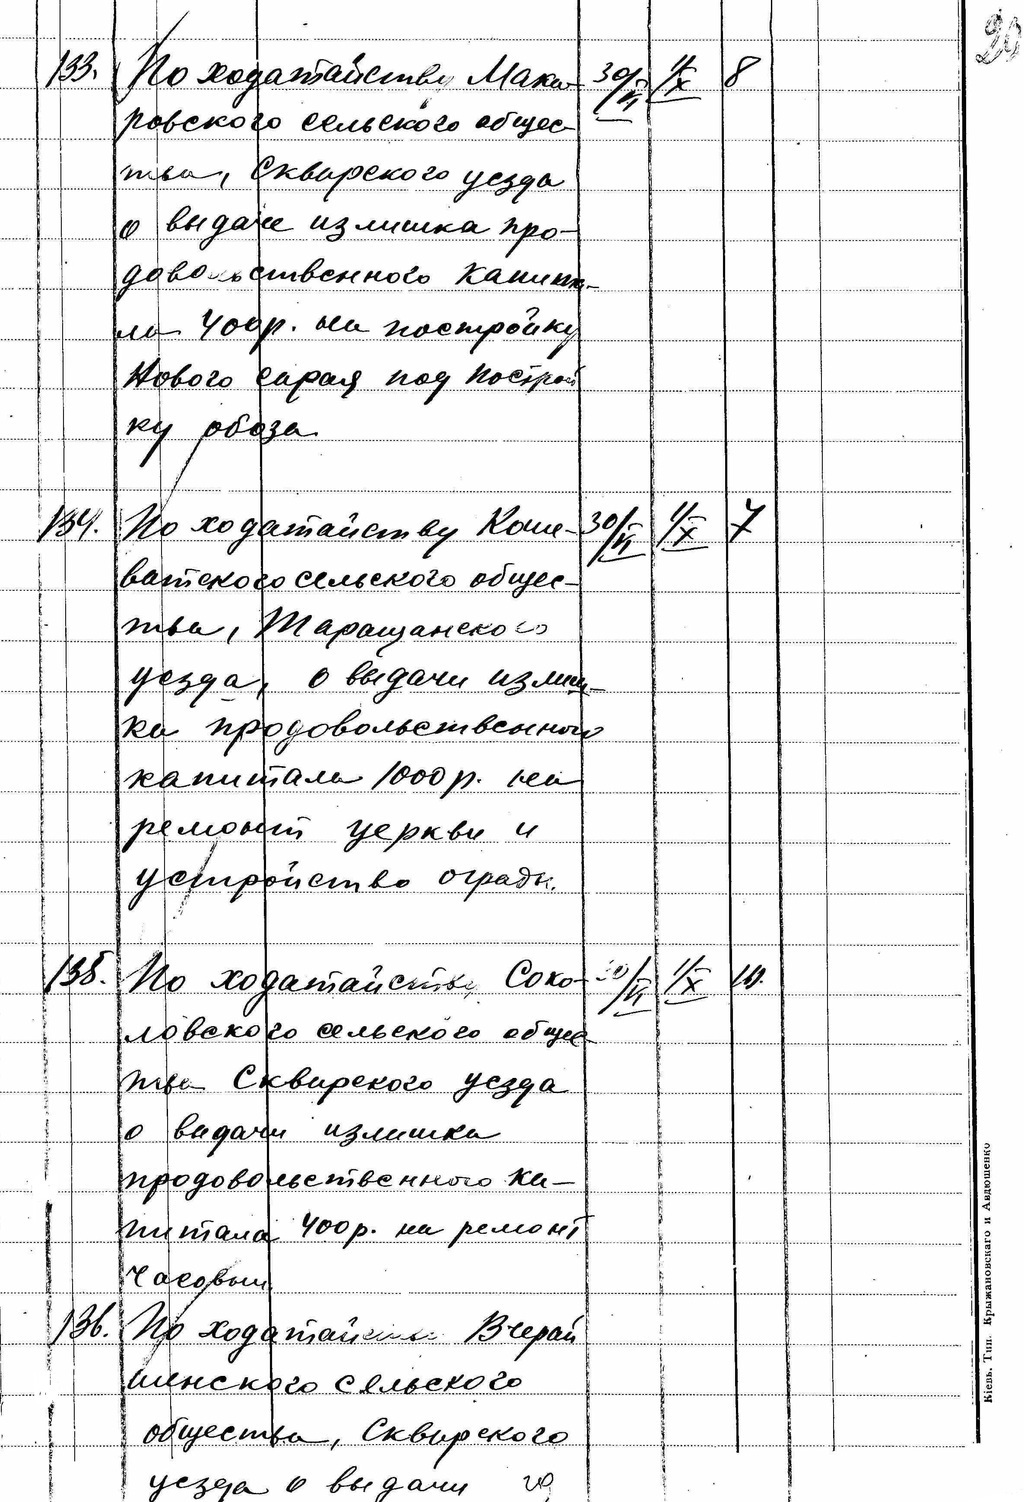 20
133. По ходатайству Мака- 30/VI 4/X 8
ровского сельского общес-
тва, Сквирского уезда
о выдаче излишка про-
довольственного капита-
ла 400р. на постройку
Нового сарая под построй
ку обоза
134. По ходатайству Коше- 30/VI 4/X 7
ватского сельского общес-
тва, Таращанского
уезда, о выдачи излиш-
ка продовольственного
капитала 1000р. на
ремонт церкви и
устройство ограды.
135. По ходатайству Соко- 30/VI 4/X 10.
ловского сельского общес-
тва Сквирского уезда
о выдачи излишка
продовольственного ка-
питала 400р. на ремонт
136. По ходатайству Вчерай
шенского сельского
общества, Сквирского
уезда о выдачи
Кіевъ. Тип. Крыжановскаго и Авдюшенко